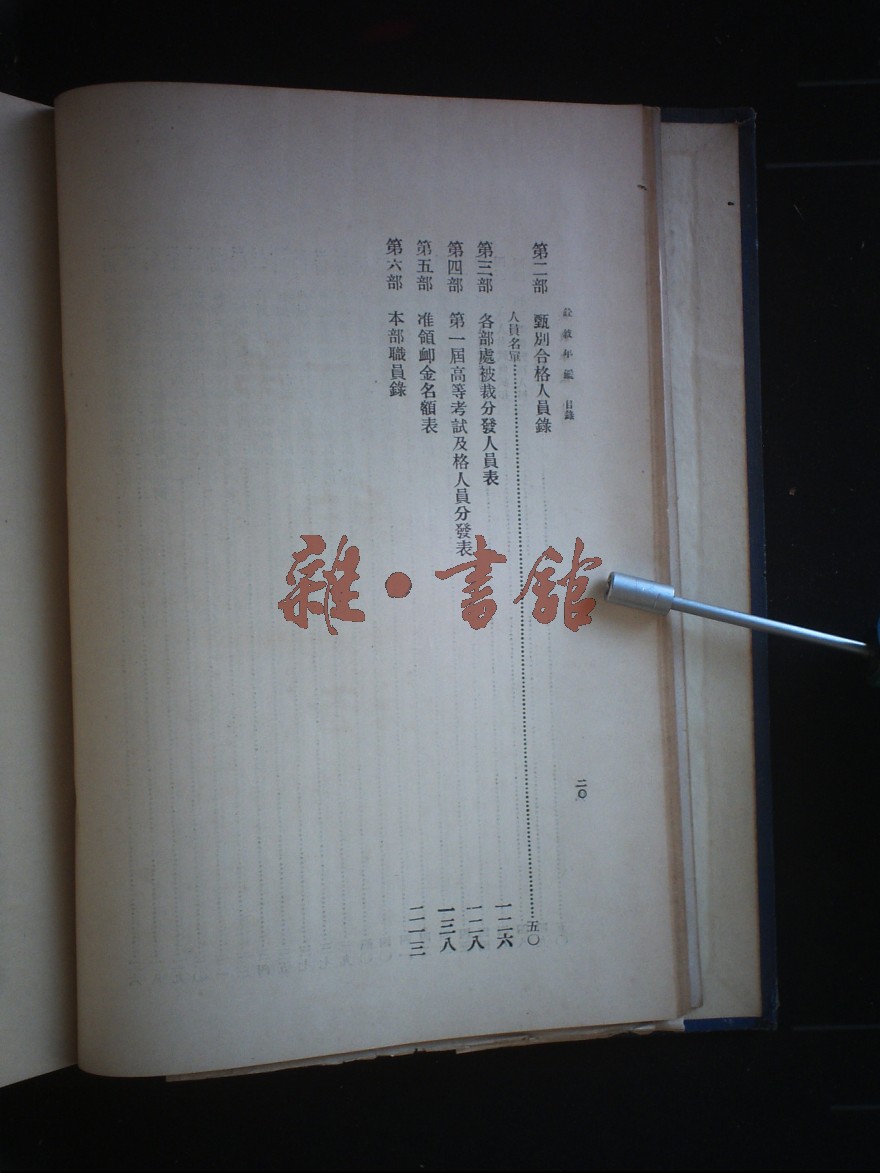 銓敘年鑑 目錄 二〇
第二部 甄別合格人員錄
人員名單……五〇
第三部 各部處被裁分發人員表 一二六
第四部 第一屆高等考試及格人員分發表 一二八
第五部 准領卹金名額表 一三八
第六部 本部職員錄 二一三
雜·書館